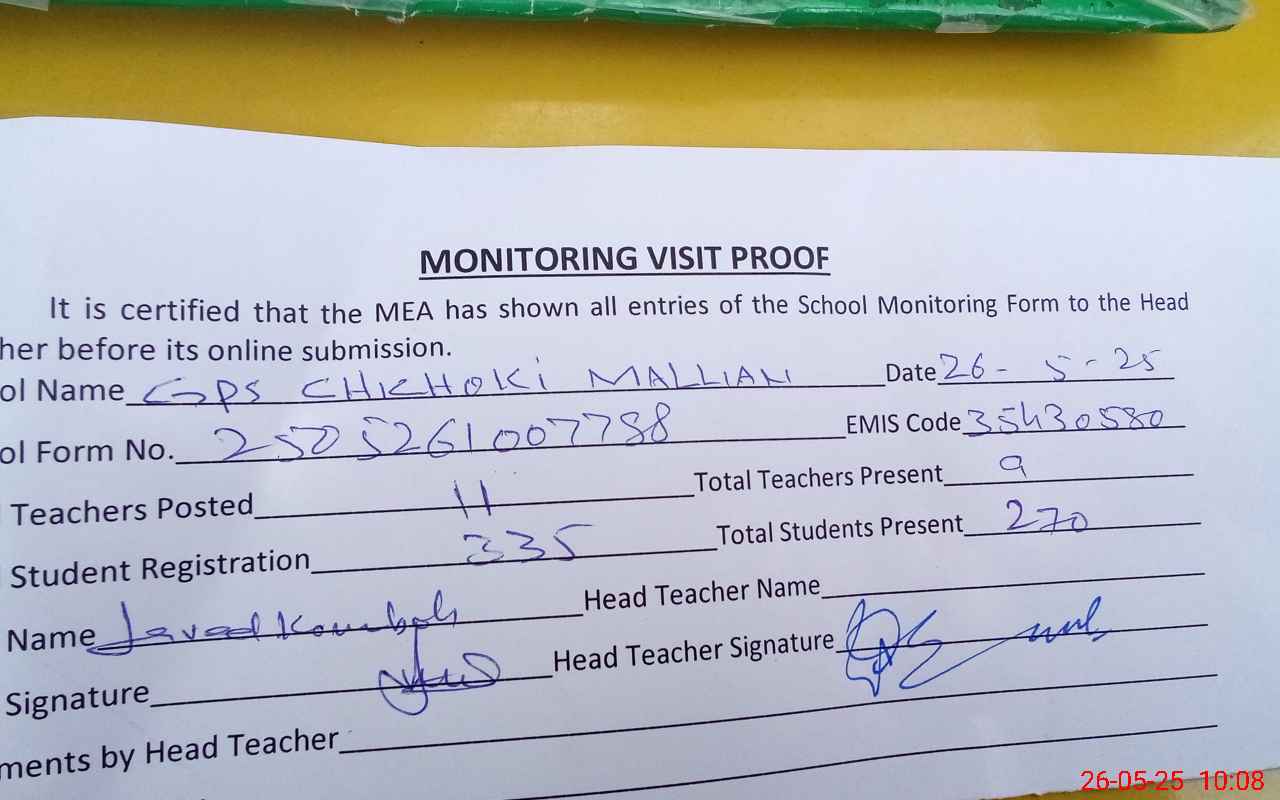 MONITORING VISIT PROOF
It is certified that the MEA has shown all entries of the School Monitoring Form to the Head
her before its online submission.
ol Name GPS CHICHOKI MALLIAN Date 26-5-25
ol Form No. 2505261007788 EMIS Code 35430580
Teachers Posted 11 Total Teachers Present 9
Student Registration 335 Total Students Present 270
Name Javed Head Teacher Name
Signature Head Teacher Signature
ments by Head Teacher
26-05-25 10:08